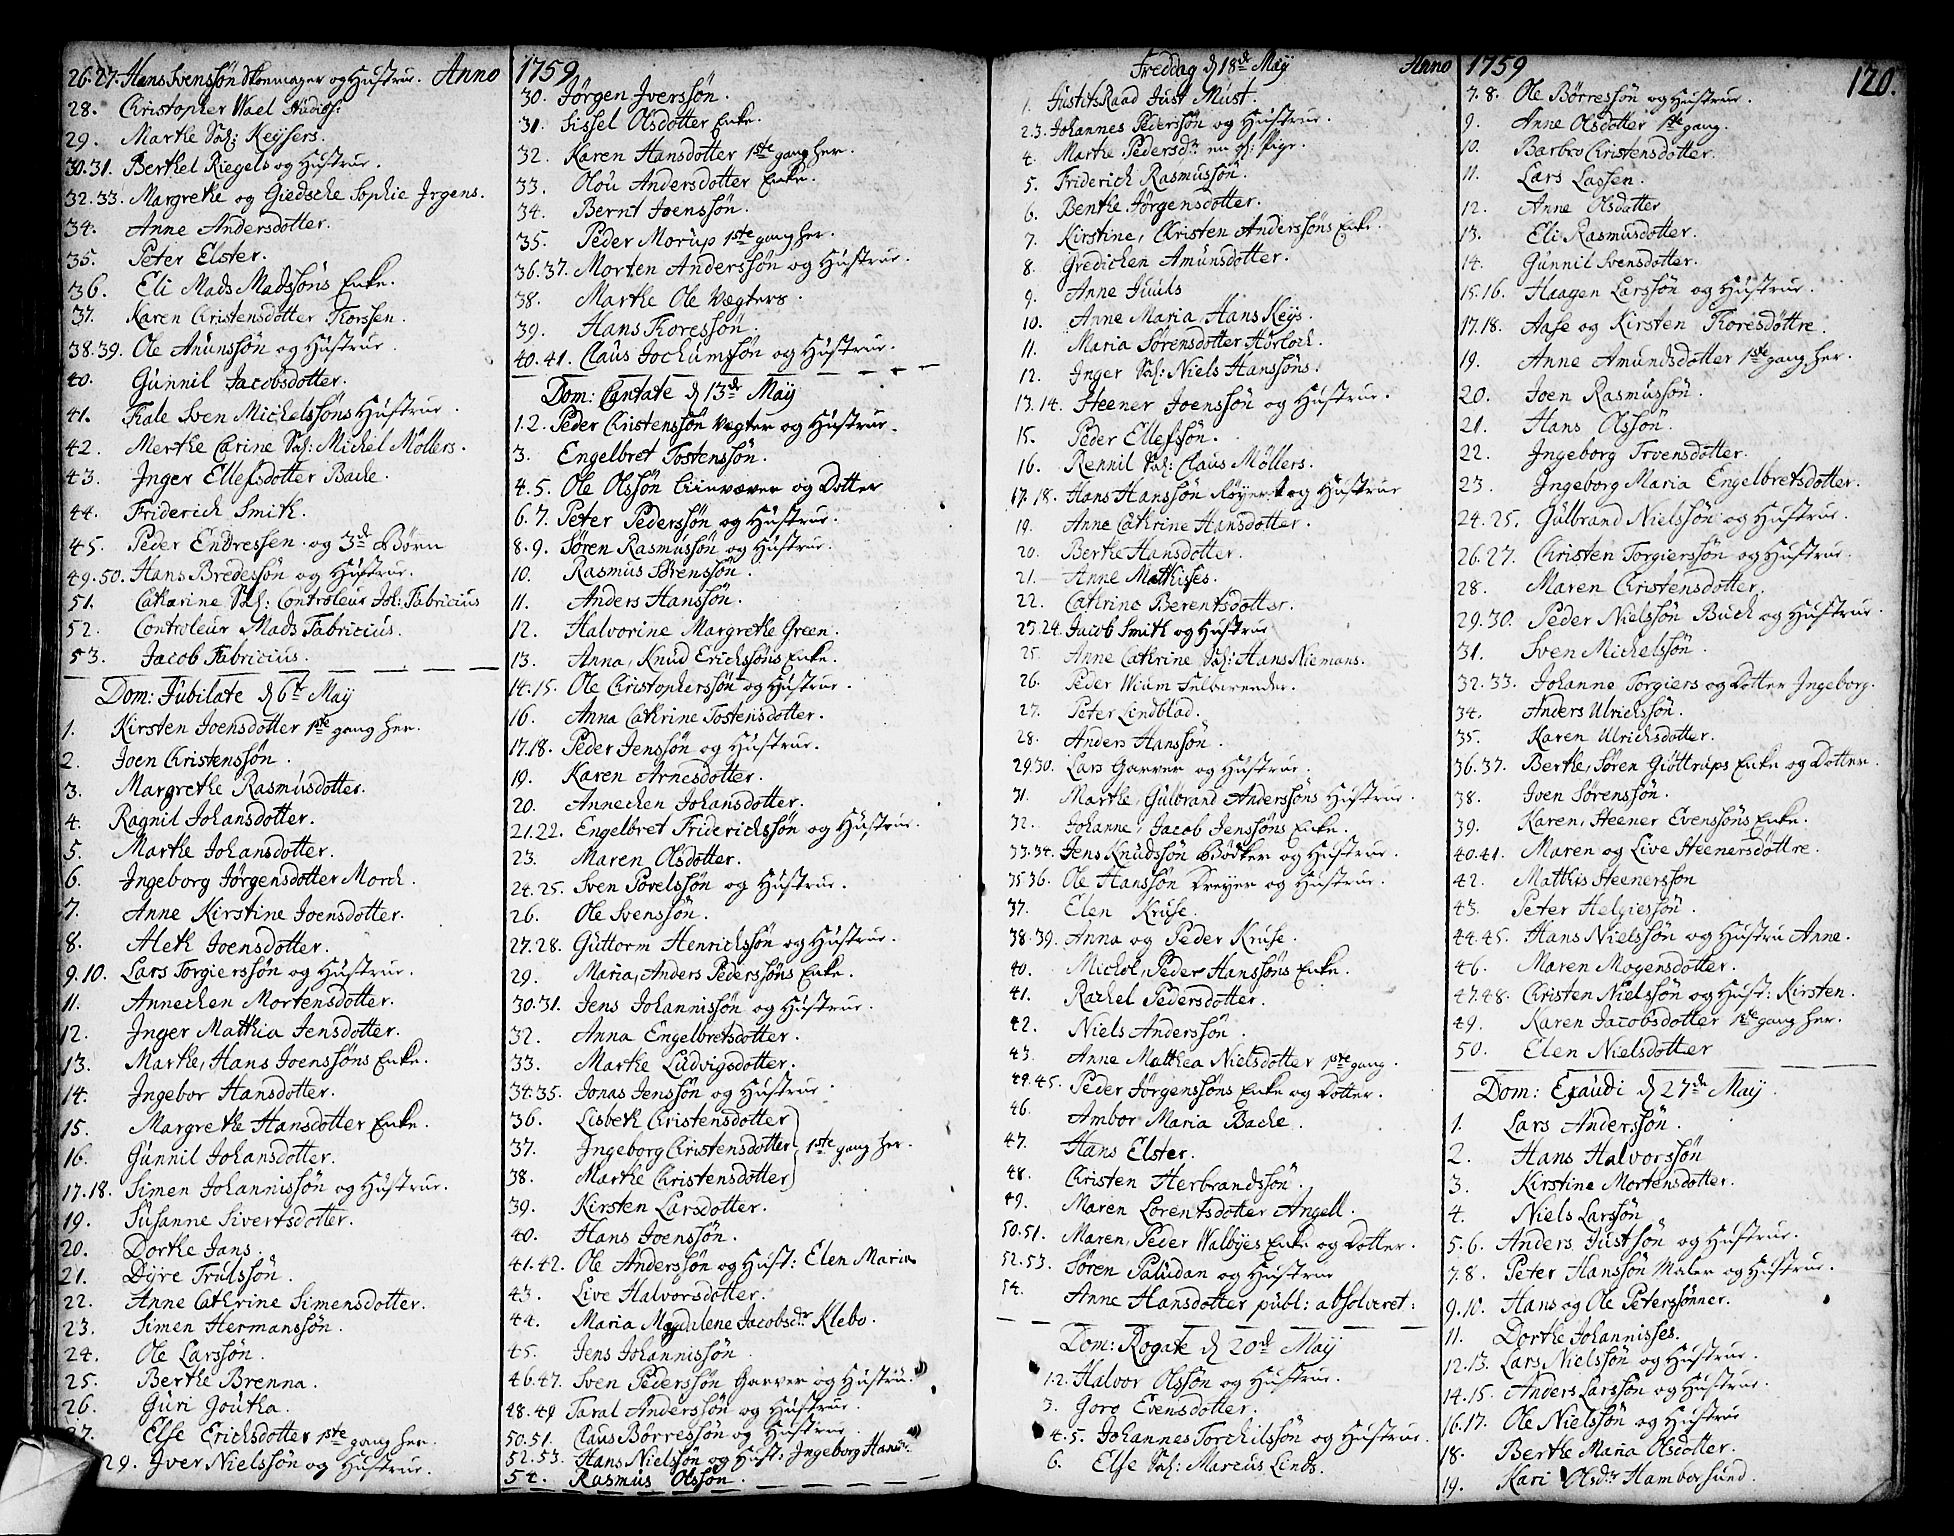 Anno 1759
26.27. Hans Svenssøn Skomager og Hustrue.
28. Christopher Wael Studios:
29. Marthe Sal: Keysers.
30.31. Berthel Riegels og Hustrue.
32.33. Margrethe og Giedsche Sophie Jrgens.
34. Anne Andersdotter.
35. Peter Elster.
36. Eli Mads Madssøns Enke.
37. Karen Christensdotter Thorssen.
38.39. Ole Anunssøn og Hustrue.
40. Gunnil Jacobsdotter.
41. Thale Sven Michelssøns Hustrue.
42. Merthe Carine Sal: Michel Möllers.
43. Jnger Ellefsdotter Bache.
44. Friderich Smith.
45. Peder Endressen og 3de Børn
49.50. Hans Bredessøn og Hustrue.
51. Catharine Sal: Controleur Joh: Fabricius
52. Controleur Mads Fabricius.
53. Jacob Fabricius.
Dom: Jubilate d 6te Maÿ
1. Kirsten Joensdotter 1ste gang her.
2. Joen Christenssøn.
3. Margrethe Rasmusdotter.
4. Ragnil Johansdotter.
5. Marthe Johansdotter.
6. Jngeborg Jørgensdotter Morch.
7. Anne Kirstine Joensdotter.
8. Aleth Joensdotter.
9.10. Lars Torgierssøn og Hustrue.
11. Annechen Mortensdotter.
12. Jnger Matthia Jensdotter.
13. Marthe, Hans Joenssøns Enke.
14. Jngebor Hansdotter.
15. Margrethe Hansdotter Enke.
16. Gunnil Johansdotter.
17.18. Simen Johannissøn og Hustrue.
19. Susanne Sivertsdotter.
20. Dorthe Jans.
21. Dÿre Trulssøn.
22. Anne Cathrine Simensdotter.
23. Simen Hermanssøn.
24. Ole Larssøn.
25. Berthe Brenna.
26. Guri Joutha.
27. Else Erichsdotter 1ste gang her.
29. Jver Nielssøn og Hustrue.
30. Jørgen Jverssøn.
31. Sissel Olsdotter Enke.
32. Karen Hansdotter 1ste gang her.
33. Olou Andersdotter Enke.
34. Bernt Joenssøn.
35. Peder Morup 1ste gang her.
36.37. Morten Anderssøn og Hustrue.
38. Marthe Ole Vægters.
39. Hans Thoressøn.
40.41. Claus Jochumssøn og Hustrue.
Dom: Cantate d 13de Maÿ
1.2. Peder Christenssøn Vægter og Hustrue.
3. Engelbret Tostenssøn.
4.5. Ole Olssøn Linvæver og Dotter
6.7. Peter Pederssøn og Hustrue.
8.9. Søren Rasmussøn og Hustrue.
10. Rasmus Sørenssøn.
11. Anders Hanssøn.
12. Halvorine Margrethe Green.
13. Anna, Knud Erichssøns Enke.
14.15. Ole Christopherssøn og Hustrue.
16. Anna Cathrine Tostensdotter.
17.18. Peder Jenssøn og Hustrue.
19. Karen Arnesdotter.
20. Annechen Johansdotter.
21.22. Engelbret Friderichssøn og Hustrue.
23. Maren Olsdotter.
24.25. Sven Povelssøn og Hustrue.
26. Ole Svenssøn.
27.28. Guttorm Henrichssøn og Hustrue.
29. Maria, Anders Pederssøns Enke.
30.31. Jens Johannissøn og Hustrue.
32. Anna Engelbretsdotter.
33. Marthe Ludvigsdotter.
34.35. Jonas Jenssøn og Hustrue.
36. Lisbeth Christensdotter
37. Jngeborg Christensdotter 1ste gang her.
38. Marthe Christensdotter
39. Kirsten Larsdotter.
40. Hans Joenssøn.
41.42. Ole Anderssøn og Hust: Elen Maria
43. Live Halvorsdotter.
44. Maria Magdalene Jacobsdr Klebo.
45. Jens Johannissøn
46.47. Sven Pederssøn Garver og Hustrue.
48.49 Taral Anderssøn og Hustrue.
50.51. Claus Børressøn og Hustrue
52.53. Hans Nielssøn og Hust: Jngeborg Hansdr
54. Rasmus Olssøn.
Freddag d 18de Maÿ Anno 1759
120.
1. JustitsRaad Just Must.
2.3. Johannes Pederssøn og Hustrue.
4. Marthe Pedersdr en Pige.
5. Friderich Rasmussøn.
6. Benthe Jørgensdotter.
7. Kirstine, Christen Anderssøns Enke.
8. Gredichen Amunsdotter.
9. Anne Juuls
10. Anne Maria Hans Keÿs.
11. Maria Sørensdotter Hörloch.
12. Jnger Sal: Niels Hanssøns.
13.14. Steener Joenssøn og Hustrue.
15. Peder Ellefssøn.
16. Rennil Sal: Claus Möllers.
17.18. Hans Hanssøn Røÿert og Hustrue
19. Anne Cathrine Hansdotter.
20. Berthe Hansdotter.
21. Anne Mathisses.
22. Cathrine Berentsdotter.
23.24. Jacob Smith og Hustrue
25. Anne Cathrine Sal: Hans Niemans.
26. Peder Wium
27. Peter Lindblad.
28. Anders Hanssøn.
29.30. Lars Garver og Hustrue.
31. Marthe, Gulbrand Anderssøns Hustrue.
32. Johanne, Jacob Jenssøns Enke.
33.34. Jens Knudssøn Bødker og Hustrue.
35.36. Ole Hanssøn Dreyer og Hustrue.
37. Elen Kruse.
38.39. Anna og Peder Kruse.
40. Michel, Peder Hanssøns Enke.
41. Rachel Pedersdotter.
42. Niels Anderssøn.
43. Anne Matthea Nielsdotter 1ste gang.
44.45. Peder Jørgenssøns Enke og Dotter.
46. Ambor Maria Bache.
47. Hans Elster.
48. Christen Herbrandssøn.
49. Maren Lorentsdotter Angell.
50.51. Maren, Peder Walbÿes Enke og Dotter.
52.53. Søren Paludan og Hustrue
54. Anne Hansdotter publ: absolveret:
Dom: Rogate d 20de Maÿ
1.2. Halvor Olssøn og Hustrue.
3. Goro Evensdotter.
4.5. Johannes Torchilssøn og Hustrue.
6. Else Sal: Marcus Linds.
7.8. Ole Børressøn og Hustrue.
9. Anne Olsdotter 1ste gang.
10. Barbro Christensdotter.
11. Lars Lassen.
12. Anne Olsdatter
13. Eli Rasmusdotter.
14. Gunnil Svensdotter.
15.16. Haagen Larssøn og Hustrue.
17.18. Aase og Kirsten Thoresdøttre.
19. Anne Amundsdotter 1ste gang her.
20. Joen Rasmussøn.
21. Hans Olssøn.
22. Jngeborg Troensdotter.
23. Jngeborg Maria Engelbretsdotter.
24.25. Gulbrand Nielssøn og Hustrue.
26.27. Christen Torgierssøn og Hustrue.
28. Maren Christensdotter.
29.30. Peder Nielssøn Buch og Hustrue
31. Sven Michelssøn.
32.33. Johanne Torgiers og Dotter Jngeborg.
34. Anders Ulrichssøn.
35. Karen Ulrichsdotter.
36.37. Berthe, Søren Giøttrups Enke og Dotter.
38. Joen Sørenssøn.
39. Karen, Steener Evenssøns Enke.
40.41. Maren og Live Steenersdøttre.
42. Matthis Steenerssøn
43. Peter Helgiessøn.
44.45. Hans Nielssøn og Hustru Anne.
46. Maren Mogensdotter.
47.48. Christen Nielssøn og Hust: Kirsten.
49. Karen Jacobsdotter 1ste gang her.
50. Elen Nielsdotter
Dom: Exaudi d 27de Maÿ.
1. Lars Anderssøn.
2. Hans Halvorssøn
3. Kirstine Mortensdotter.
4. Niels Larssøn
5.6. Anders Justssøn og Hustrue.
7.8. Peter Hanssøn Maler og Hustrue.
9.10. Hans og Ole Peterssønner.
11. Dorthe Johannisses.
12.13. Lars Nielssøn og Hustrue.
14.15. Anders Larssøn og Hustrue.
16.17. Ole Nielssøn og Hustrue
18. Berthe Maria Olsdotter.
19. Kari Olsdr Hamborsund.